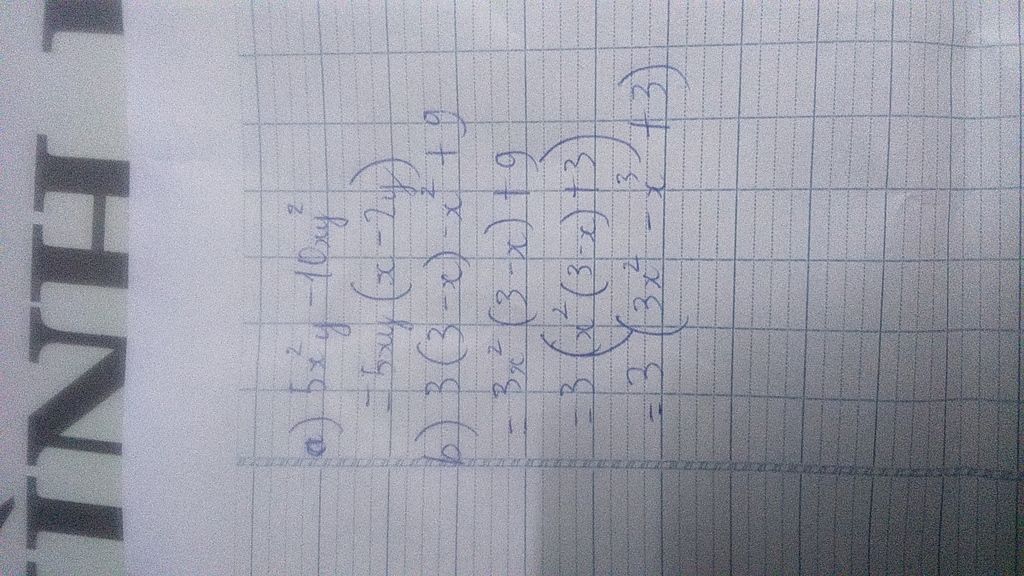 INH
a) 5x²y - 10xy²
= 5xy (x - 2y)
b) 3(3 - x) - x² + 9
= 3x² (3 - x) + 9
= 3 (x² (3 - x) + 3)
= 3 (3x² - x³ + 3)